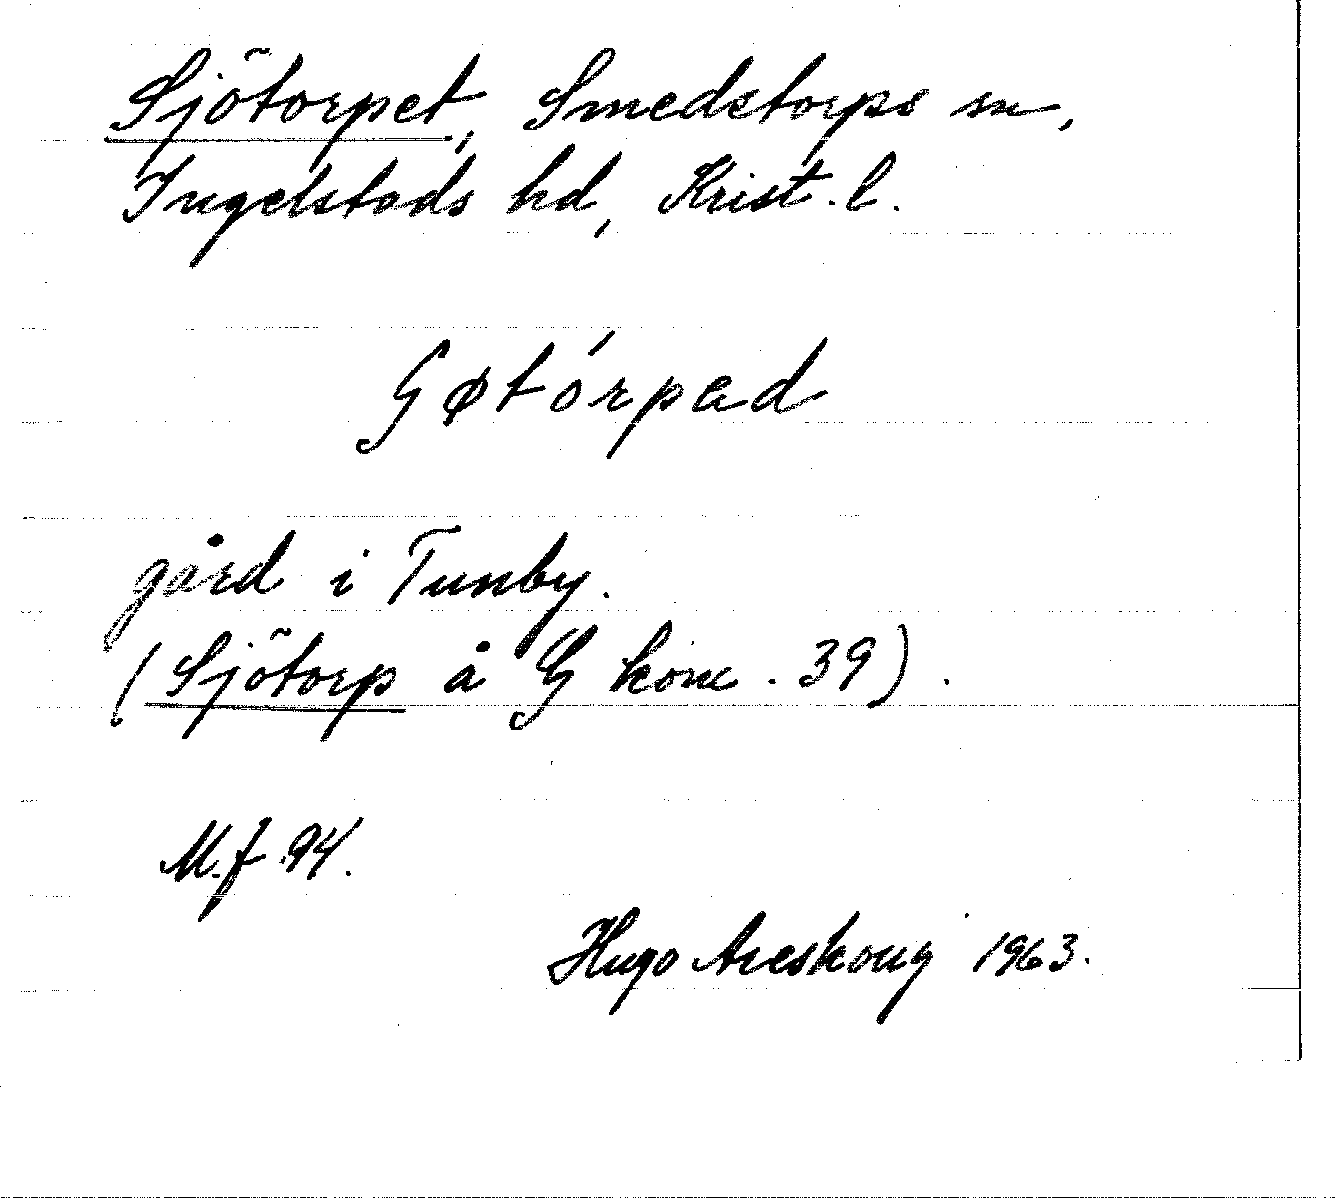 Sjötorpet, Smedstorps sn,
Ingelstads hd, Krist. l.
Gøtórpad
gård i Tunby.
(Sjötorp å G konc. 39).
M.f. 94.
Hugo Areskoug 1963.